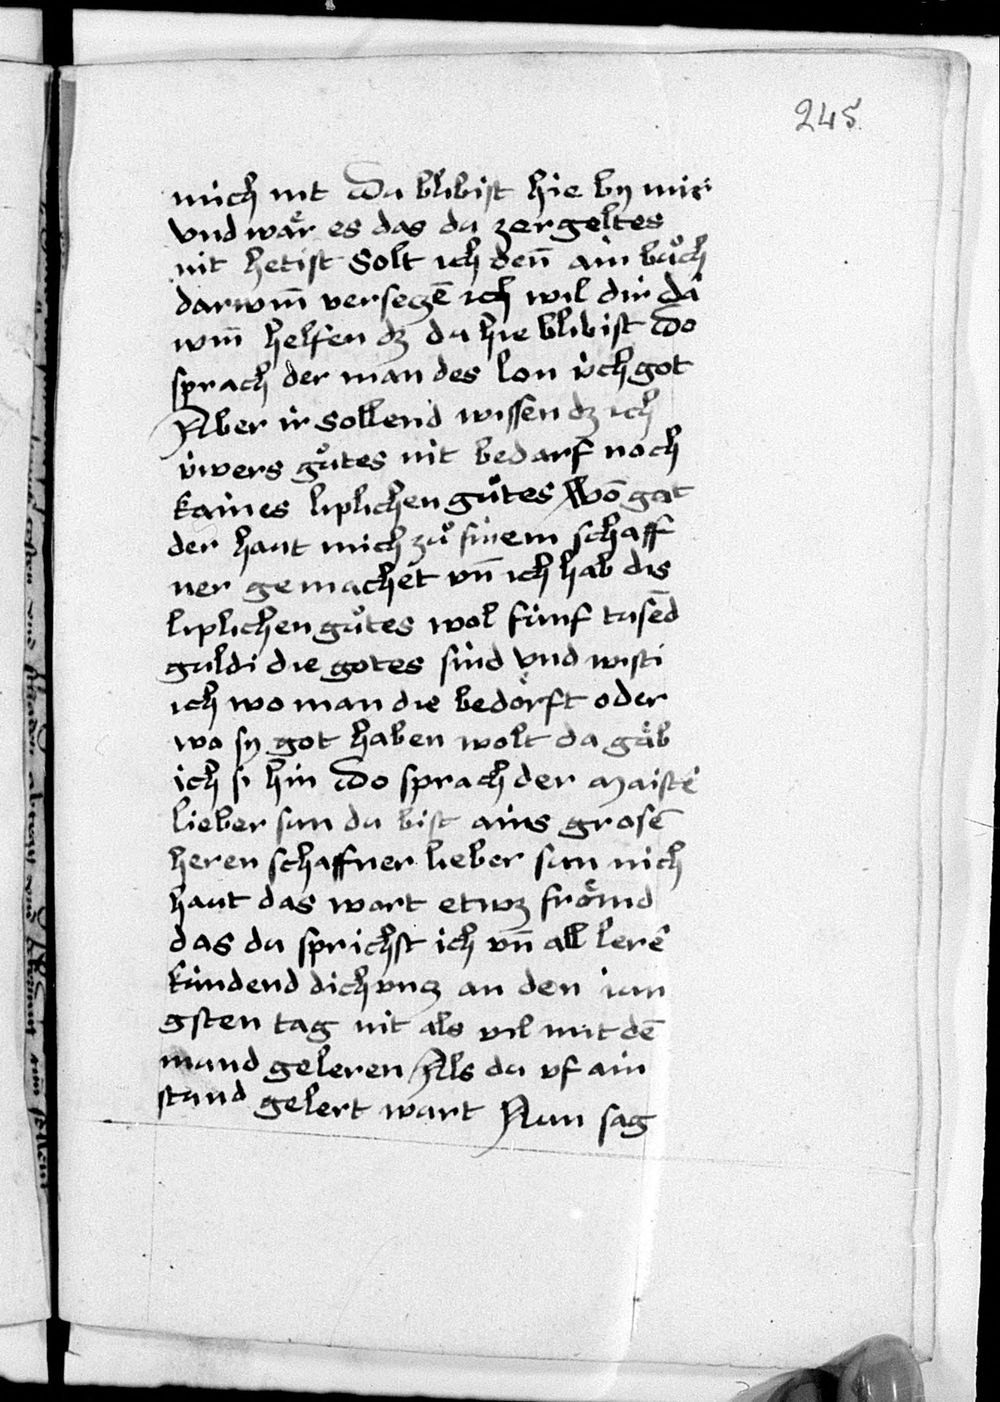 245
mich nit Du blibist hie by mir
vnd wär es das du zergeltes
nit hetist Solt ich den̄ ain bůch
darwm̄ verseczē ich wil dir da
wm̄ helfen dz du hie blibist Do
sprach der man des lon v̈ch got
Aber ir Sollend wissen dz ich
v̈wers gůtes nit bedarf noch
kaines liplichen gůtes Wō gat
der haut mich zů sinem schaff
ner gemachet vn̄ ich hab dis
liplichen gůtes wol fúnf tusēd
guldi die gotes sind vnd wisti
ich wo man die bedörft oder
wo sy got haben wolt da gäb
ich si hin Do sprach der maiste
lieber sun du bist ains grosē
heren schaffner lieber sun mich
haut das wort etwz frömd
das du sprichst ich vn̄ all lerē
kúndend dich vncz an den iun
gsten tag nit als vil mit dē
mund geleren Als du vf ain
stund gelert wart Nun sag